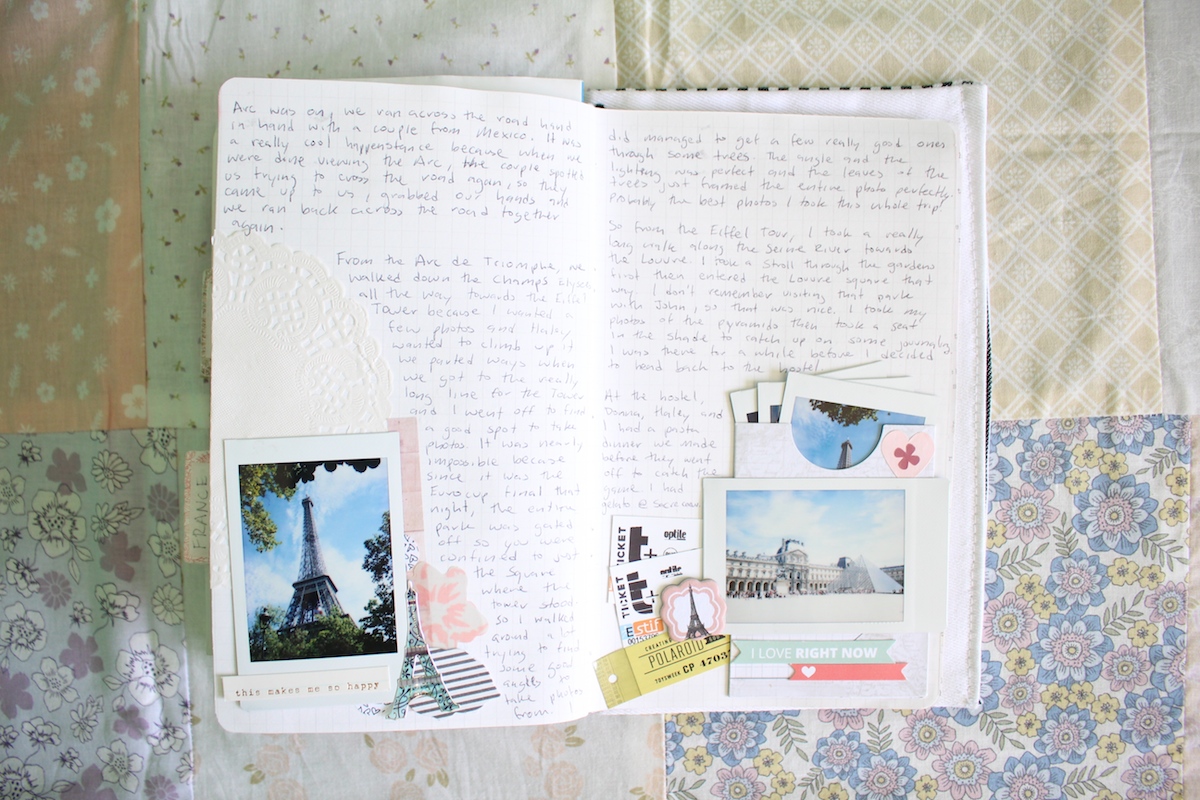 Arc was on, we ran across the road hand
in hand with a couple from Mexico. It was
a really cool happenstance because when we
were done viewing the Arc, the couple spotted
us trying to cross the road again, so they
came up to us, grabbed our hands and
we ran back across the road together
again.
From the Arc de Triomphe, we
walked down the Champs Elysees
all the way towards the Eiffel
Tower because I wanted a
few photos and Haley
wanted to climb up it.
We parted ways when
we got to the really
long line for the Tower
and I went off to find
a good spot to take
photos. It was nearly
impossible because
since it was the
Eurocup final that
night, the entire
park was gated
off so you were
confined to just
the square
where the
tower stood.
So I walked
around a lot
trying to find
some good
angles to
take photos
from. I
this makes me so happy
FRANCE
did managed to get a few really good ones
through some trees. The angle and the
lighting was perfect and the leaves of the
trees just framed the entire photo perfectly.
Probably the best photos I took this whole trip!
So from the Eiffel Tour, I took a really
long walk along the Seine River towards
the Louvre. I took a stroll through the gardens
first then entered the Louvre square that
way. I don't remember visiting that park
with John, so that was nice. I took my
photos of the pyramids then took a seat
in the shade to catch up on some journaling.
I was there for a while before I decided
to head back to the hostel.
At the hostel,
Donna, Haley and
I had a pasta
dinner we made
before they went
off to catch the
game. I had
gelato @ Sacre Coeur
TICKET
optile
TICKET
optile
POLAROID
CP 4703
I LOVE RIGHT NOW